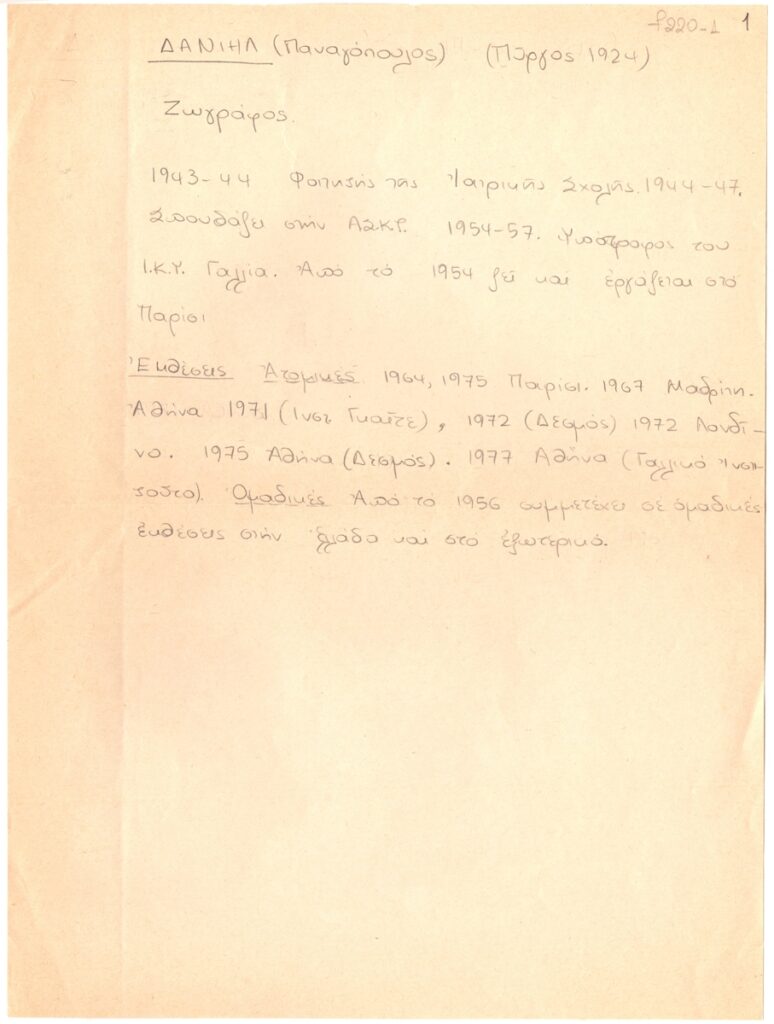 f220-1 1
ΔΑΝΙΗΛ (Παναγόπουλος) (Πύργος 1924)
Ζωγράφος.
1943-44 Φοιτητής της Ἰατρικῆς Σχολῆς. 1944-47.
Σπουδάζει στήν ΑΣΚΤ. 1954-57. Ὑπότροφος του
Ι.Κ.Υ. Γαλλία. Ἀπό τό 1954 ζεῖ καί ἐργάζεται στό
Παρίσι
Ἐκθέσεις Ἀτομικές 1964, 1975 Παρίσι. 1967 Μαδρίτη.
Ἀθήνα 1971 (Ινστ Γκαῖτε), 1972 (Δεσμός) 1972 Λονδῖ-
νο. 1975 Ἀθήνα (Δεσμός). 1977 Ἀθήνα (Γαλλικό Ἰνστι-
τοῦτο). Ὁμαδικές Ἀπό τό 1956 συμμετέχει σέ ὁμαδικές
ἐκθέσεις στήν Ἑλλάδα καί στό ἐξωτερικό.